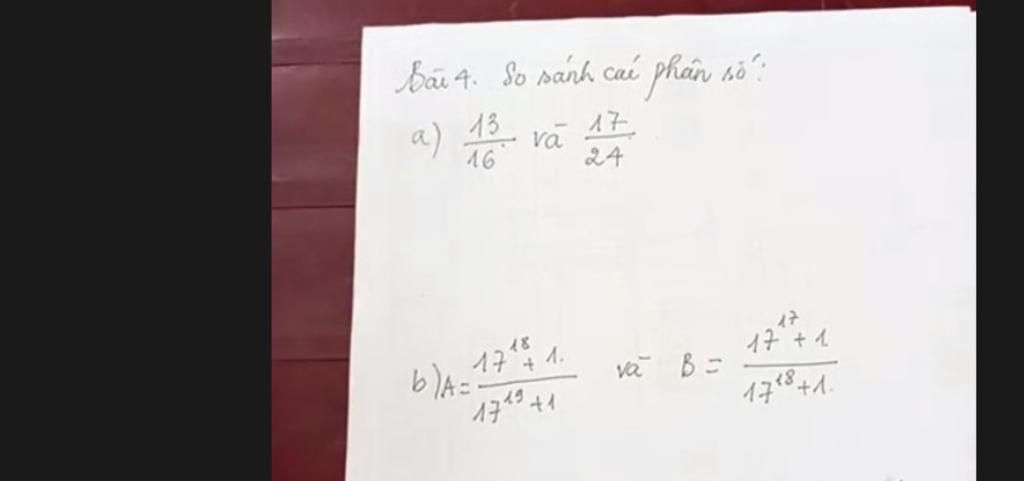 Bài 4. So sánh các phân số:
a) 13/16 và 17/24
b) A = (17^18 + 1)/(17^19 + 1) và B = (17^17 + 1)/(17^18 + 1)